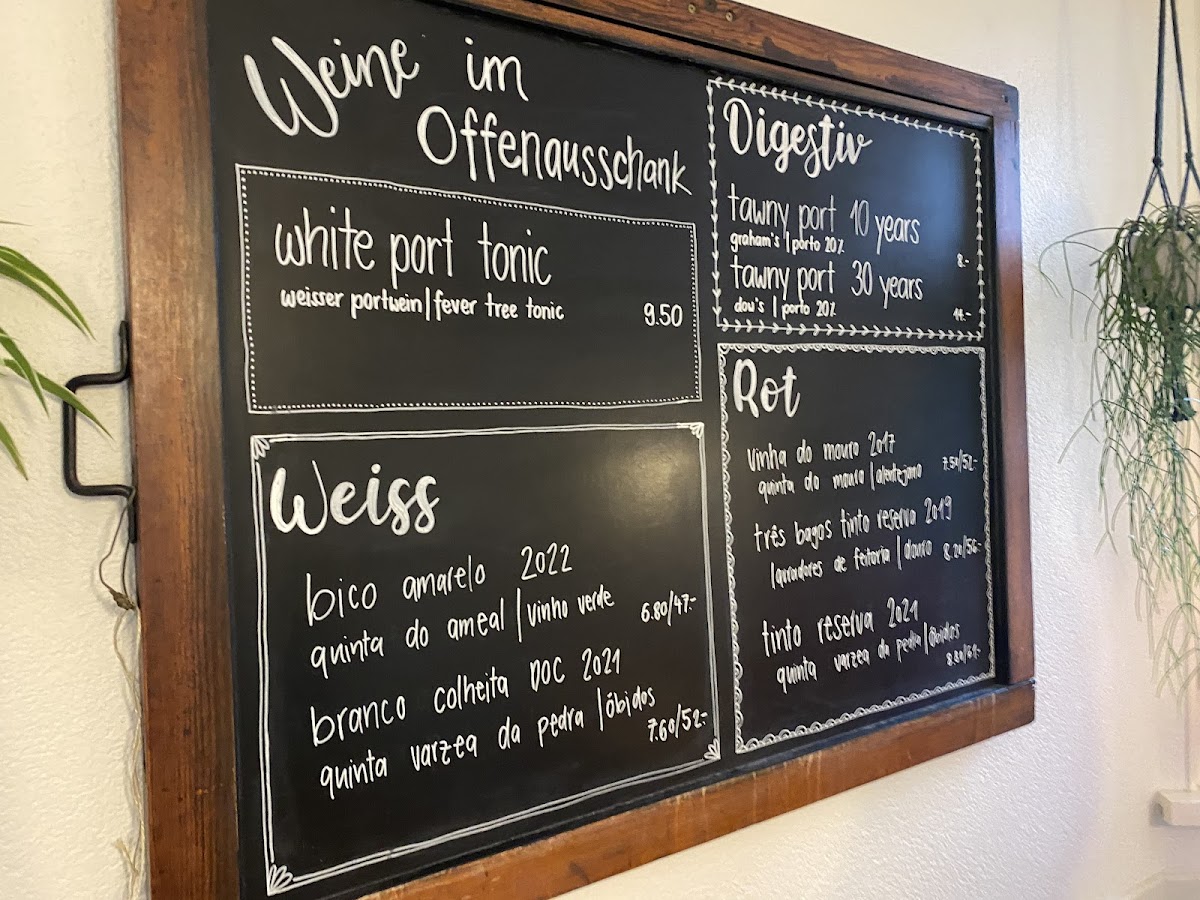 Weine im
Offenausschank
white port tonic
weisser portwein|fever tree tonic
9.50
Weiss
bico amarelo 2022
quinta do ameal|vinho verde
6.80/47.-
branco colheita DOC 2021
quinta varzea da pedra|óbidos
7.60/52.-
Digestiv
tawny port 10 years
graham's|porto 20%
8.-
tawny port 30 years
dow's|porto 20%
14.-
Rot
vinha do mouro 2017
quinta do mouro|alentejano
7.50/52.-
três bagos tinto reserva 2019
lavradores de feitoria|douro
8.20/56.-
tinto reserva 2021
quinta varzea da pedra|óbidos